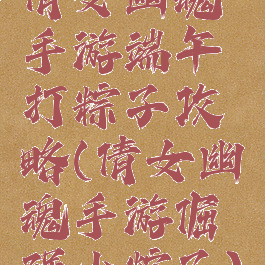 倩女幽魂
手游端午
打粽子攻
略(倩女幽
魂手游倔
强小粽子)